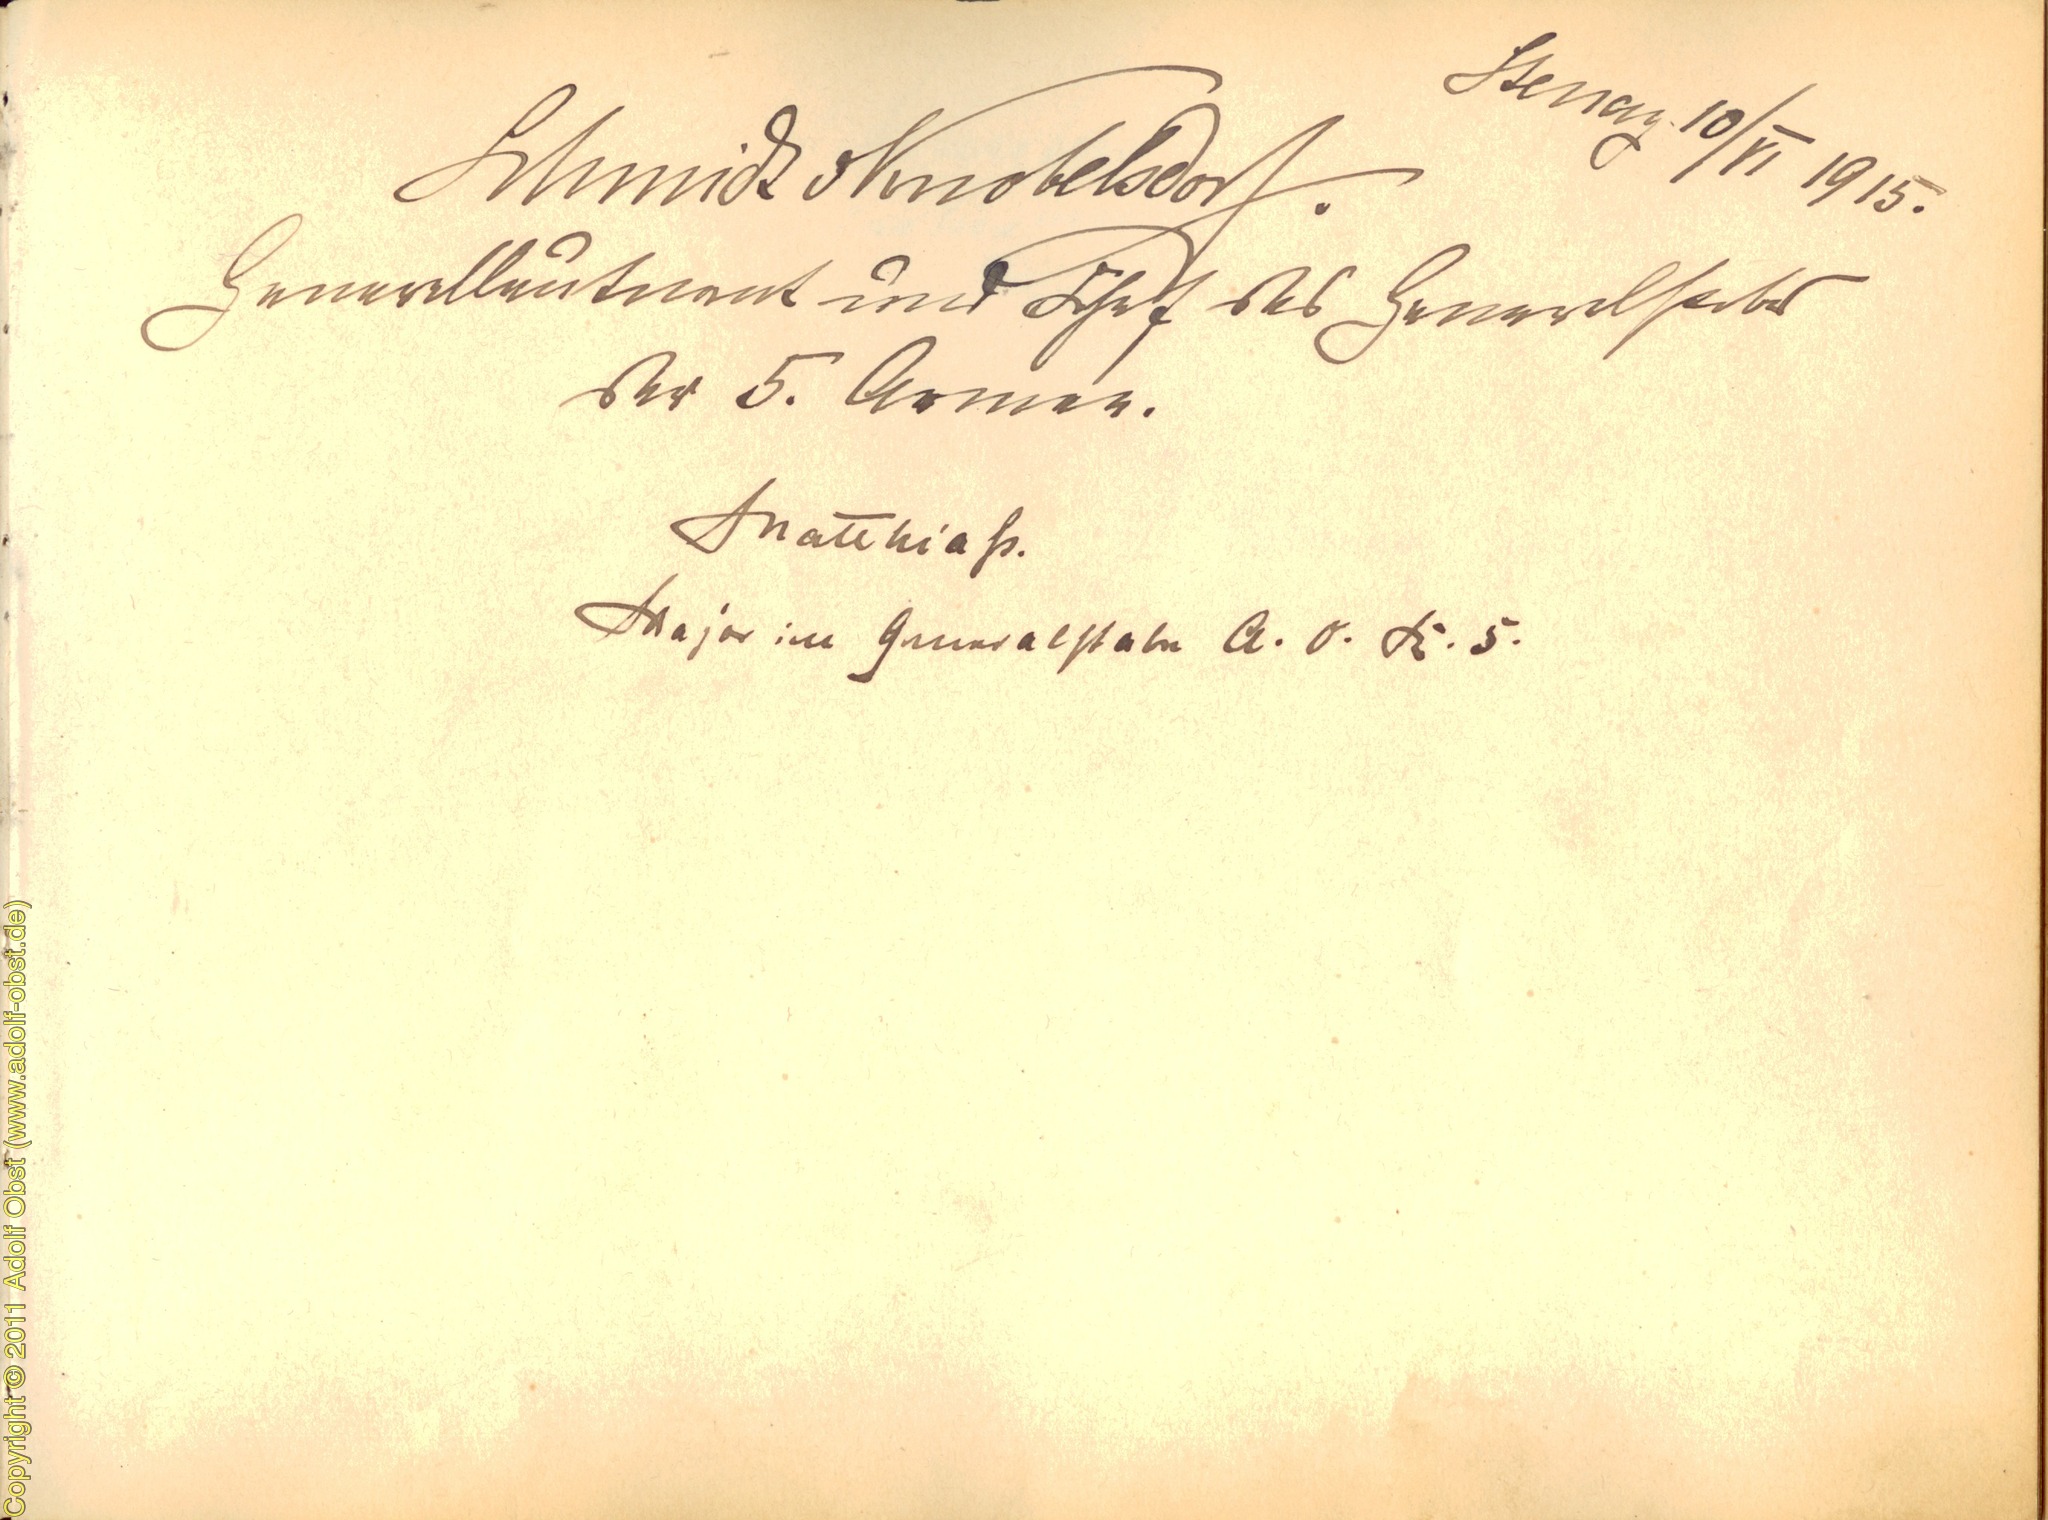 Stenay 10/VI 1915.
Schmidt v Knobelsdorf.
Generalleutnant und Chef des Generalstabes
der 5. Armee.
Matthiaß.
Major im Generalstabe A. O. K. 5.
Copyright © 2011 Adolf Obst (www.adolf-obst.de)